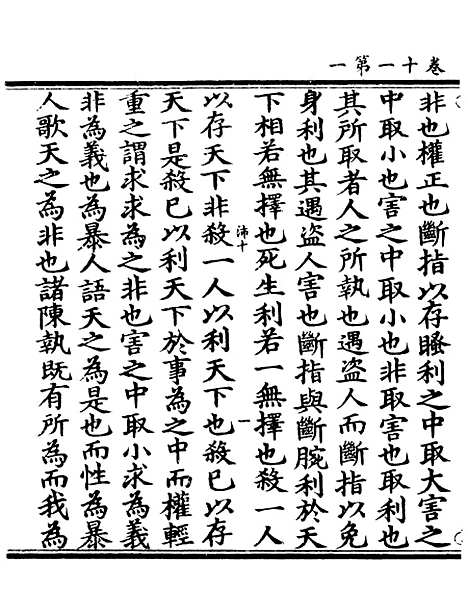 卷十一第一
非也權正也斷指以存𦡀利之中取大害之
中取小也害之中取小也非取害也取利也
其所取者人之所執也遇盜人而斷指以免
身利也其遇盜人害也斷指與斷腕利於天
下相若無擇也死生利若一無擇也殺一人
以存天下非殺一人以利天下也殺已以存
天下是殺已以利天下於事為之中而權輕
重之謂求求為之非也害之中取小求為義
非為義也為暴人語天之為是也而性為暴
人歌天之為非也諸陳執既有所為而我為
沛十
一